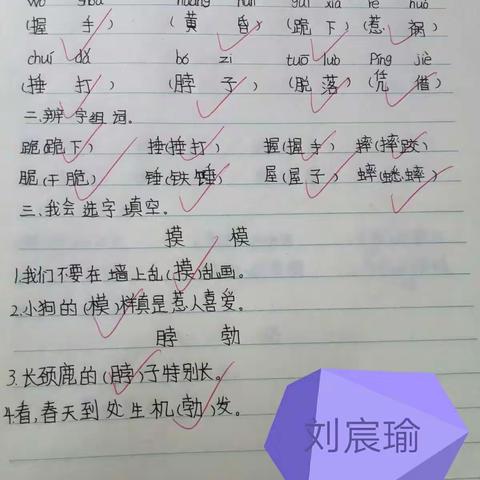 wò shǒu huáng hūn guì xià rě huò
(握 手) (黄 昏) (跪 下) (惹 祸)
chuí dǎ bó zi tuō luò píng jiè
(捶 打) (脖 子) (脱 落) (凭 借)
二.辨字组词。
跪(跪下) 捶(捶打) 握(握手) 摔(摔跤)
脆(干脆) 锤(铁锤) 屋(屋子) 蟀(蟋蟀)
三.我会选字填空。
摸 模
1.我们不要在墙上乱(摸)乱画。
2.小狗的(模)样真是惹人喜爱。
脖 勃
3.长颈鹿的(脖)子特别长。
4.看,春天到处生机(勃)发。
刘宸瑜